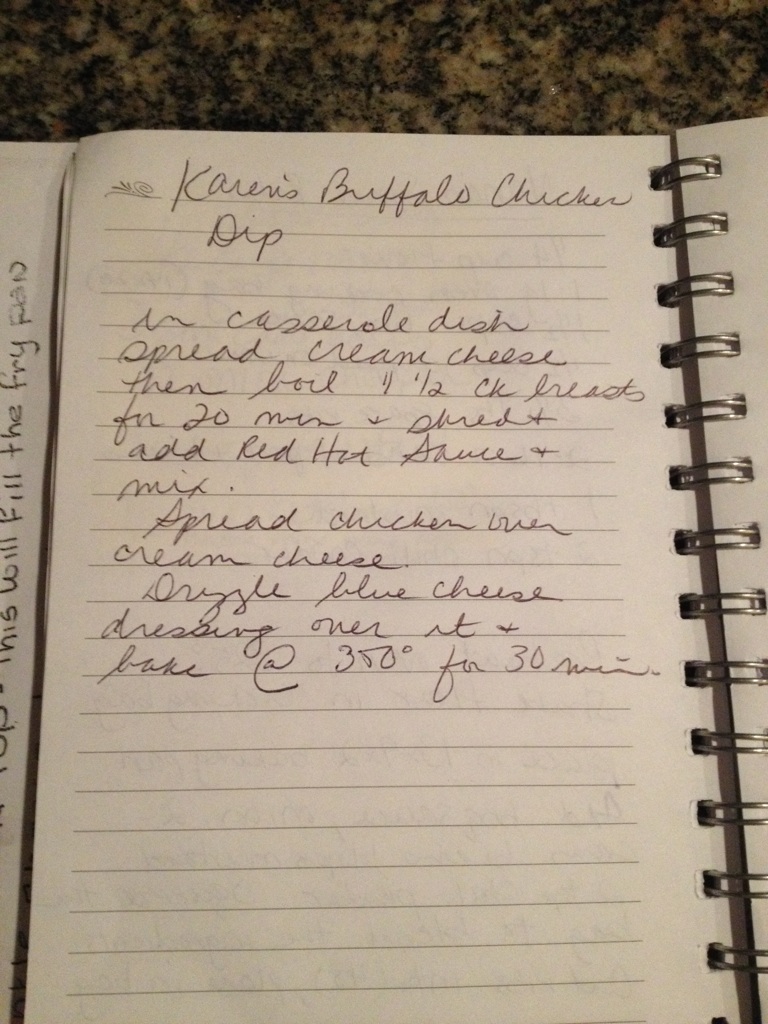 Karen's Buffalo Chicken
Dip
in casserole dish
spread cream cheese
then boil 1 1/2 ck breasts
for 20 min + shred +
add Red Hot Sauce +
mix.
Spread chicken over
cream cheese.
Drizzle blue cheese
dressing over it +
bake @ 350° for 30 min.
TOP - This will fill the fry pan